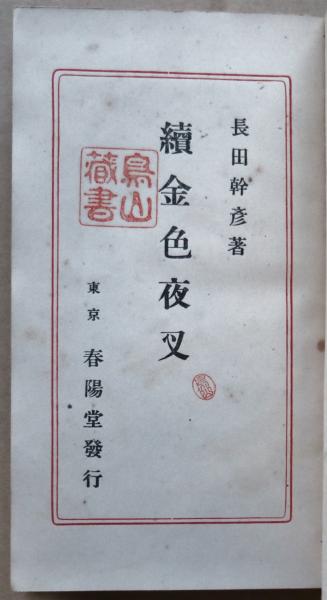 長田幹彦著
續金色夜叉
東京 春陽堂發行
鳥山藏書